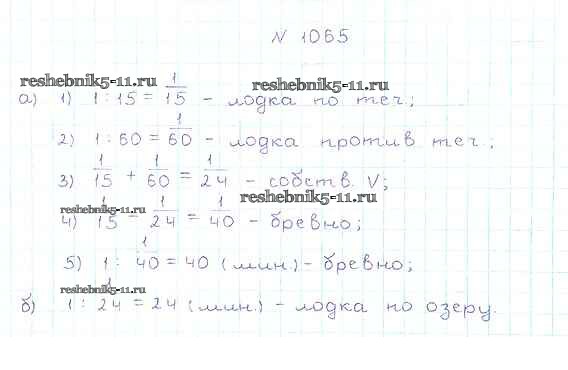 N 1065
reshebnik5-11.ru reshebnik5-11.ru
а) 1) 1 : 15 = 1/15 - лодка по теч.;
2) 1 : 60 = 1/60 - лодка против теч.;
3) 1/15 + 1/60 = 1/24 - собств. V;
reshebnik5-11.ru reshebnik5-11.ru
4) 1/15 - 1/24 = 1/40 - бревно;
5) 1 : 1/40 = 40 (мин.) - бревно;
reshebnik5-11.ru
б) 1 : 1/24 = 24 (мин.) - лодка по озеру.